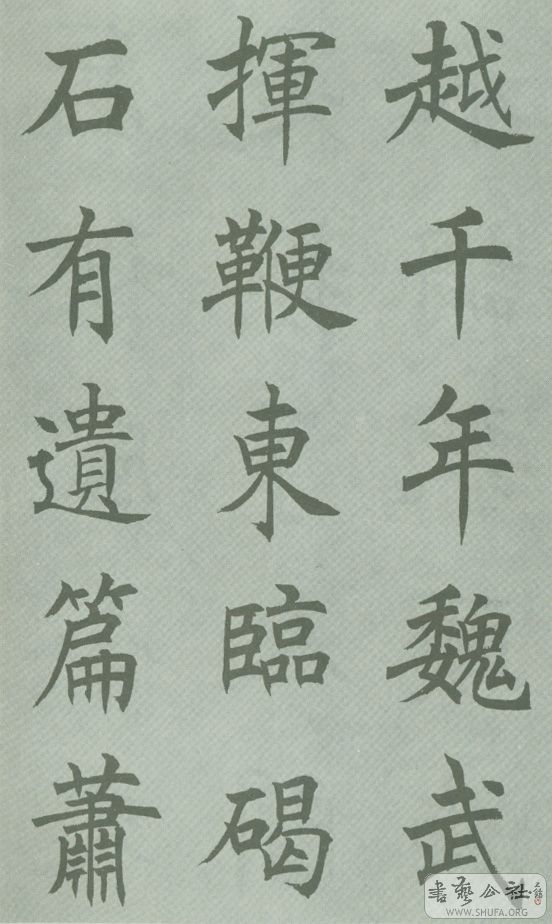 越千年魏武
揮鞭東臨碣
石有遺篇蕭
書藝公社
WWW.SHUFA.ORG